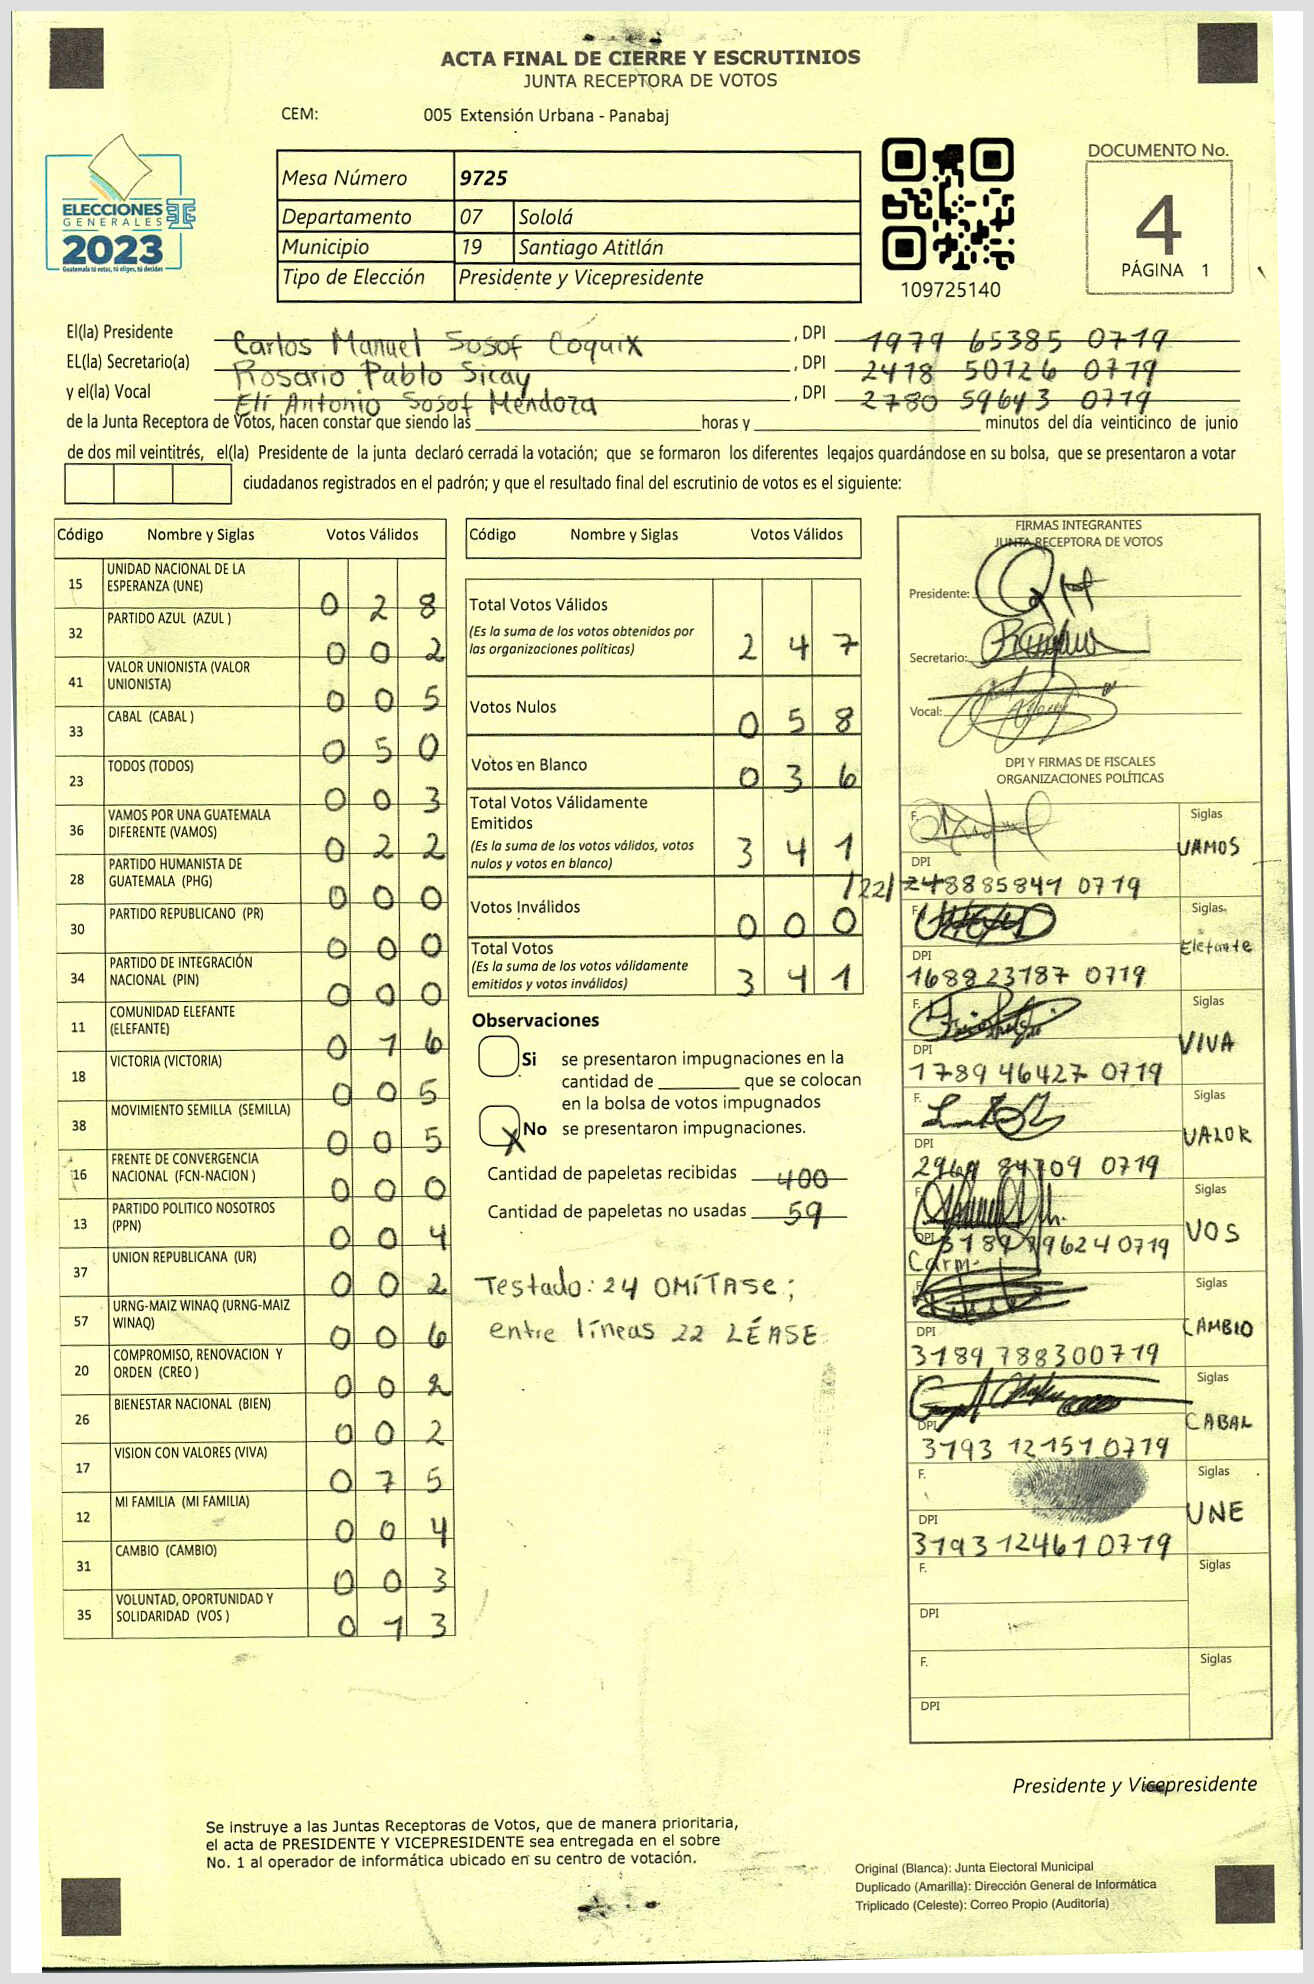 ACTA FINAL DE CIERRE Y ESCRUTINIOS
JUNTA RECEPTORA DE VOTOS
CEM: 005 Extensión Urbana - Panabaj
ELECCIONES
GENERALES
2023
Guatemala tú votas, tú eliges, tú decides
Mesa Número 9725
Departamento 07 Sololá
Municipio 19 Santiago Atitlán
Tipo de Elección Presidente y Vicepresidente
109725140
DOCUMENTO No.
4
PÁGINA 1
El(la) Presidente Carlos Manuel Sosof Coquix , DPI 1979 65385 0719
EL(la) Secretario(a) Rosario Pablo Sicay , DPI 2478 50726 0719
y el(la) Vocal Eli Antonio Sosof Mendoza , DPI 2780 59643 0719
de la Junta Receptora de Votos, hacen constar que siendo las horas y minutos del día veinticinco de junio
de dos mil veintitrés, el(la) Presidente de la junta declaró cerrada la votación; que se formaron los diferentes legajos guardándose en su bolsa, que se presentaron a votar
ciudadanos registrados en el padrón; y que el resultado final del escrutinio de votos es el siguiente:
Código Nombre y Siglas Votos Válidos
15 UNIDAD NACIONAL DE LA ESPERANZA (UNE) 0 2 8
32 PARTIDO AZUL (AZUL ) 0 0 2
41 VALOR UNIONISTA (VALOR UNIONISTA) 0 0 5
33 CABAL (CABAL ) 0 5 0
23 TODOS (TODOS) 0 0 3
36 VAMOS POR UNA GUATEMALA DIFERENTE (VAMOS) 0 2 2
28 PARTIDO HUMANISTA DE GUATEMALA (PHG) 0 0 0
30 PARTIDO REPUBLICANO (PR) 0 0 0
34 PARTIDO DE INTEGRACIÓN NACIONAL (PIN) 0 0 0
11 COMUNIDAD ELEFANTE (ELEFANTE) 0 1 6
18 VICTORIA (VICTORIA) 0 0 5
38 MOVIMIENTO SEMILLA (SEMILLA) 0 0 5
16 FRENTE DE CONVERGENCIA NACIONAL (FCN-NACION ) 0 0 0
13 PARTIDO POLITICO NOSOTROS (PPN) 0 0 4
37 UNION REPUBLICANA (UR) 0 0 2
57 URNG-MAIZ WINAQ (URNG-MAIZ WINAQ) 0 0 6
20 COMPROMISO, RENOVACION Y ORDEN (CREO ) 0 0 2
26 BIENESTAR NACIONAL (BIEN) 0 0 2
17 VISION CON VALORES (VIVA) 0 7 5
12 MI FAMILIA (MI FAMILIA) 0 0 4
31 CAMBIO (CAMBIO) 0 0 3
35 VOLUNTAD, OPORTUNIDAD Y SOLIDARIDAD (VOS ) 0 1 3
Código Nombre y Siglas Votos Válidos
Total Votos Válidos 2 4 7
(Es la suma de los votos obtenidos por
las organizaciones políticas)
Votos Nulos 0 5 8
Votos en Blanco 0 3 6
Total Votos Válidamente
Emitidos 3 4 1
(Es la suma de los votos válidos, votos
nulos y votos en blanco)
Votos Inválidos 0 0 0
Total Votos 3 4 1
(Es la suma de los votos válidamente
emitidos y votos inválidos)
Observaciones
Si se presentaron impugnaciones en la
cantidad de que se colocan
en la bolsa de votos impugnados
X No se presentaron impugnaciones.
Cantidad de papeletas recibidas 400
Cantidad de papeletas no usadas 59
Testado: 24 OMÍTASE;
entre líneas 22 LÉASE
FIRMAS INTEGRANTES
JUNTA RECEPTORA DE VOTOS
Presidente:
Secretario:
Vocal:
DPI Y FIRMAS DE FISCALES
ORGANIZACIONES POLÍTICAS
F. Siglas VAMOS
DPI /22/ 248885841 0719
F. Siglas Elefante
DPI 1688 23187 0719
F. Siglas VIVA
DPI 1789 46427 0719
F. Siglas VALOR
DPI 0719
F. Siglas VOS
DPI 0719
F. Siglas CAMBIO
DPI 3189 788300719
F. Siglas CABAL
DPI 3193 12151 0719
F. Siglas UNE
DPI 3193 12461 0719
F. Siglas
DPI
F. Siglas
DPI
Presidente y Vicepresidente
Se instruye a las Juntas Receptoras de Votos, que de manera prioritaria,
el acta de PRESIDENTE Y VICEPRESIDENTE sea entregada en el sobre
No. 1 al operador de informática ubicado en su centro de votación.
Original (Blanca): Junta Electoral Municipal
Duplicado (Amarilla): Dirección General de Informática
Triplicado (Celeste): Correo Propio (Auditoría)